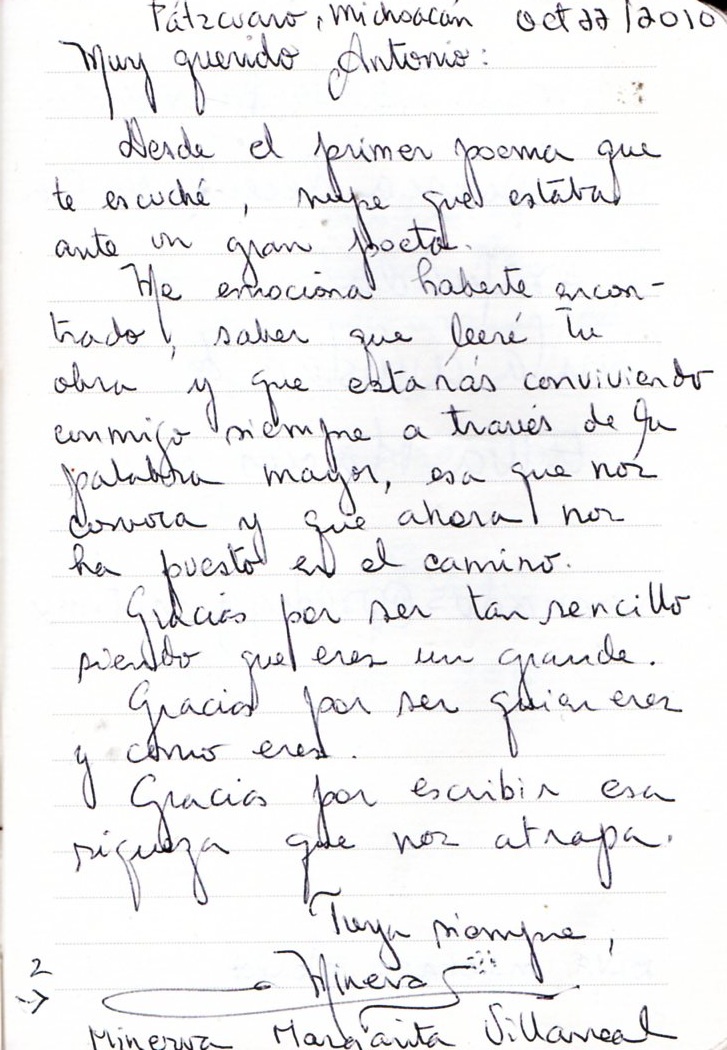 Pátzcuaro, Michoacán Oct 22/2010
Muy querido Antonio:
Desde el primer poema que
te escuché, supe que estaba
ante un gran poeta.
Me emociona haberte encon-
trado, saber que leeré tu
obra y que estarás conviviendo
conmigo siempre a través de tu
palabra mayor, esa que nos
convoca y que ahora nos
ha puesto en el camino.
Gracias por ser tan sencillo
siendo que eres un grande.
Gracias por ser quien eres
y como eres.
Gracias por escribir esa
riqueza que nos atrapa.
Tuya siempre,
2
→ Minerva
Minerva Margarita Villarreal